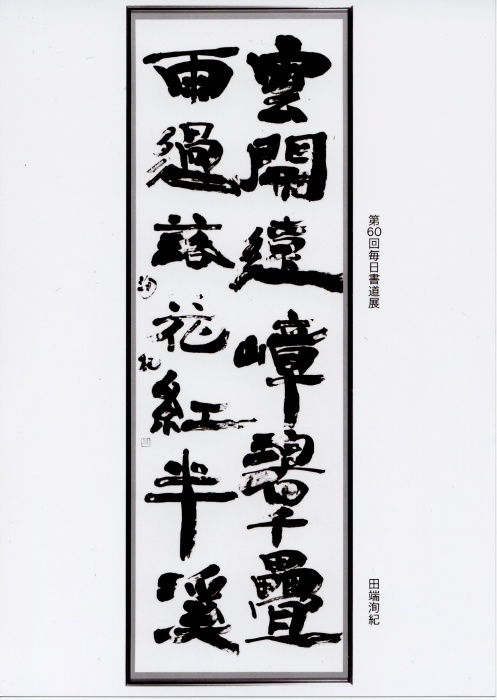 第60回毎日書道展
田端洵紀
雲開遠嶂碧千疊
雨過落花紅半溪
洵紀